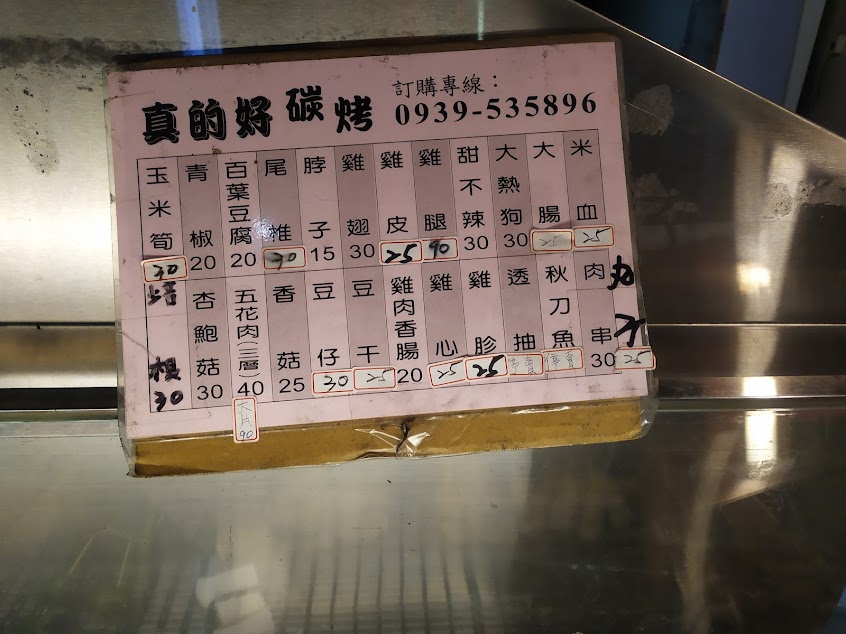 訂購專線：
真的好碳烤 0939-535896
玉米筍 30
青椒 20
百葉豆腐 20
尾椎 30
脖子 15
雞翅 30
雞皮 25
雞腿 90
甜不辣 30
大熱狗 30
大腸 25
米血 25
培根 30
杏鮑菇 30
五花肉(三層) 40
大片 90
香菇 25
豆仔 30
豆干 25
雞肉香腸 20
雞心 25
雞胗 25
透抽
秋刀魚
肉串 30
丸子 25